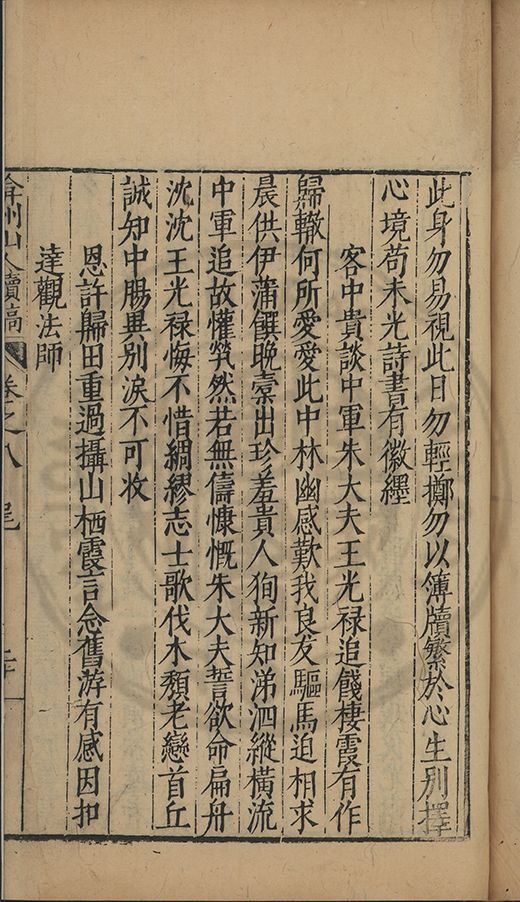 此身勿易視此日勿輕擲勿以簿牘繁於心生別擇
心境苟未光詩書有徽纆
客中貴談中軍朱大夫王光禄追餞棲霞有作
歸轍何所愛愛此中林幽感歎我良友驅馬迫相求
晨供伊蒲饌晚橐出珍羞貴人狥新知涕泗縱橫流
中軍追故懽煢然若無儔慷慨朱大夫誓欲命扁舟
沈沈王光禄悔不惜綢繆志士歌伐木頹老戀首丘
誠知中腸異别淚不可收
恩許歸田重過攝山栖霞言念舊游有感因扣
達觀法師
弇州山人續稿 卷之八